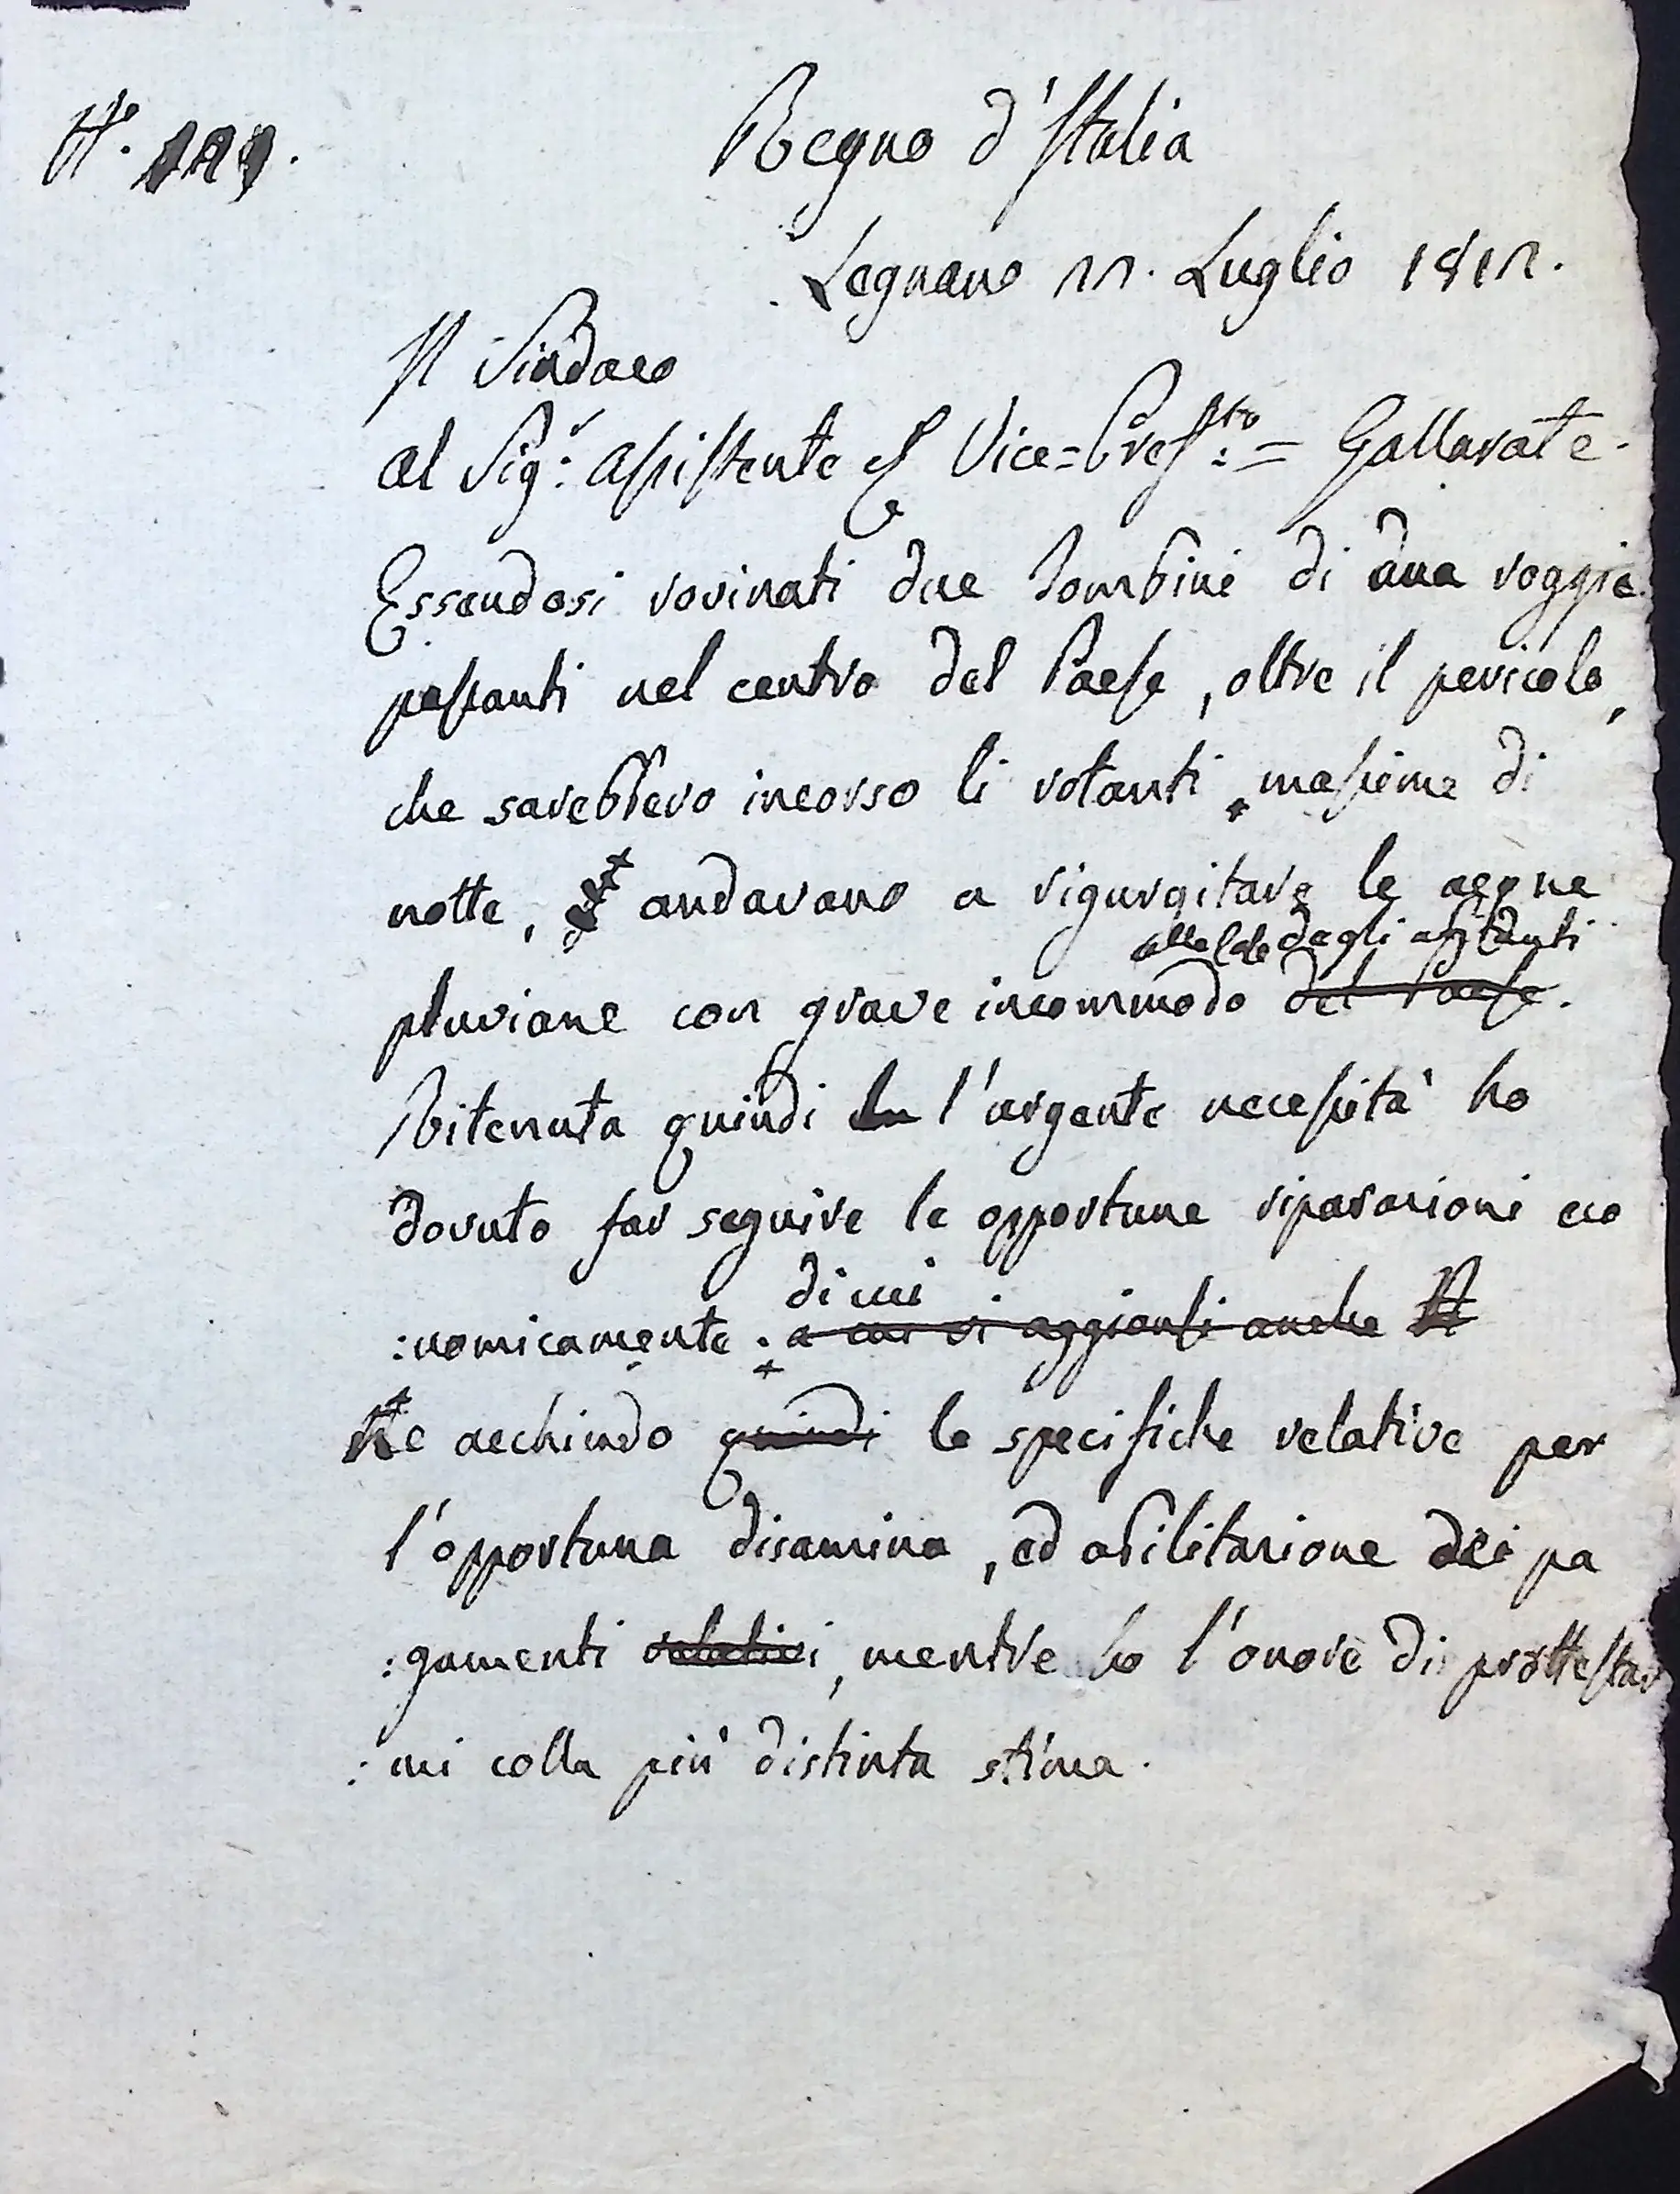 N.º 129.
Regno d'Italia
Legnano 22. Luglio 1812.
Il Sindaco
Al Sig.r Assistente Vice=Pref.to = Gallarate.
Essendosi rovinati due Tombini di due roggie
passanti nel centro del Paese, oltre il pericolo,
che sarebbero incorso li votanti massime di
notte, andavano a rigurgitare le acque
degli
pluviane con grave incommodo del Paese.
Ritenuta quindi l'urgente necessità ho
dovuto far seguire le opportune riparazioni eco
di cui
:nomicamente: a cui si aggionsi anche
Ne acchiudo quindi le specifiche relative per
l'opportuna disamina, ed abilitazione dei pa
:gamenti relativi, mentre ho l'onore di prottestar
:mi colla più distinta stima.